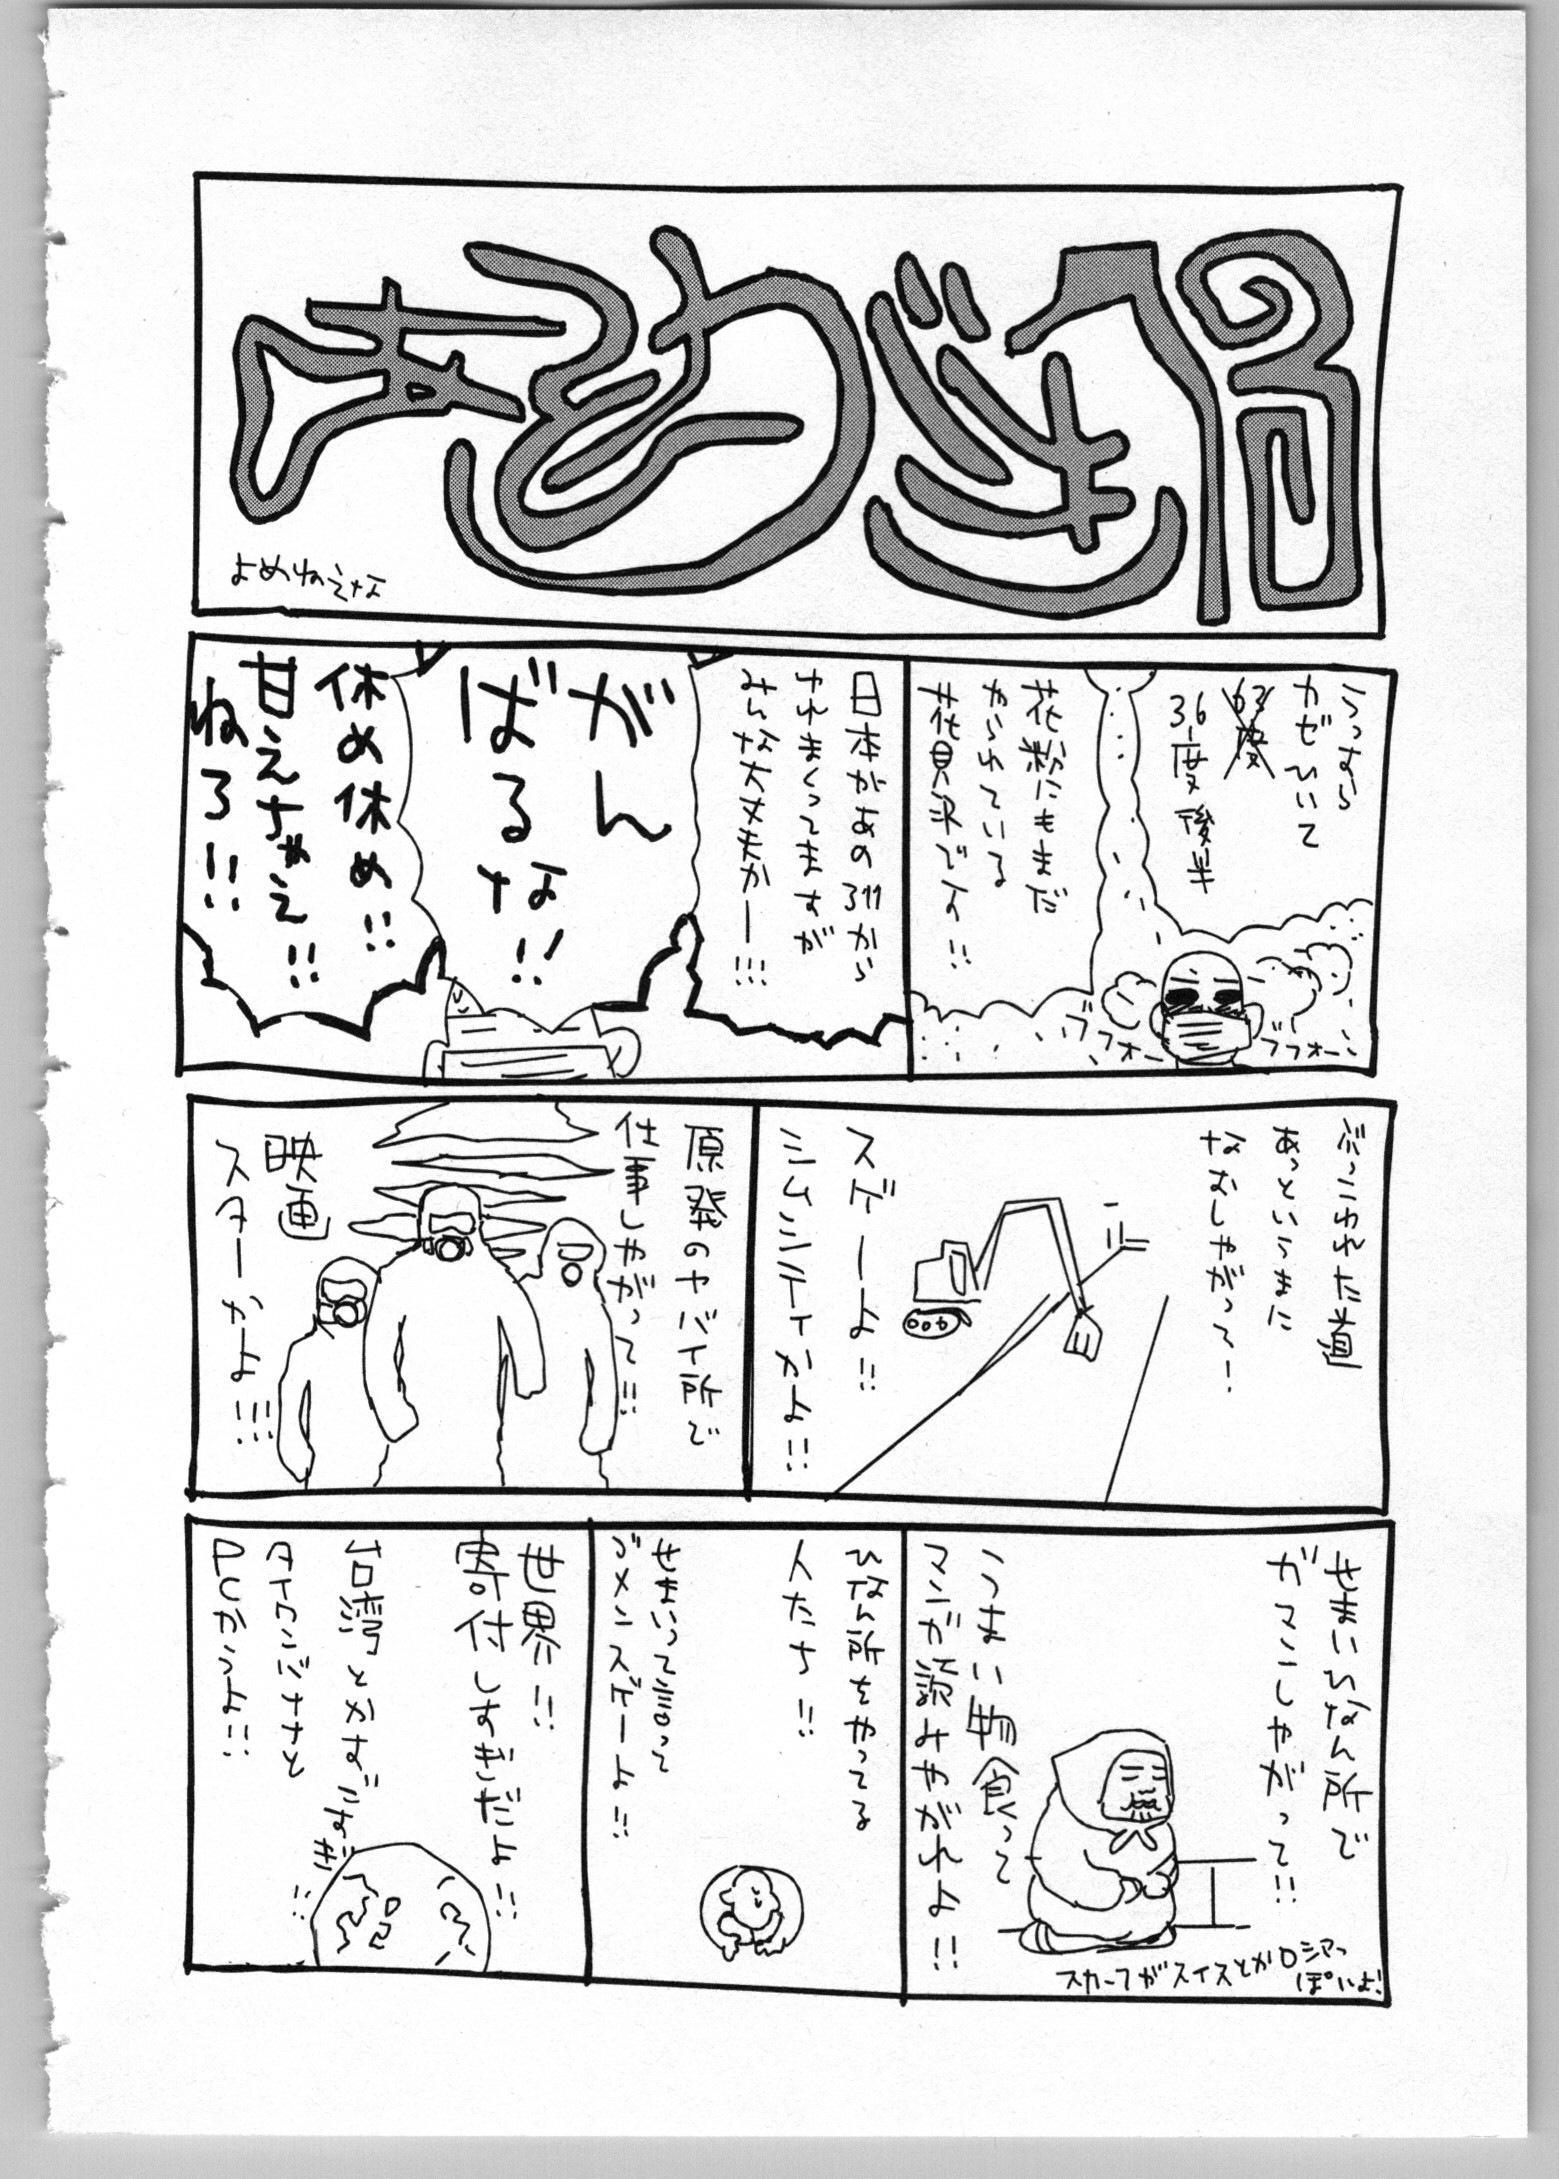 よめねえな
うっすら
カゼひいて
36度後半
花粉にもまだ
やられている
花見糸でよ!!
ブフォー
ブフォー
日本があの311から
やれまくってますが
みんな大丈夫かー!!!
がん
ばるな!!
休め休め!!
甘えちゃえ!!
ねろ!!
ぶっこわれた道
あっというまに
なおしやがって!
スゲーよ!!
シムシティかよ!!
原発のヤバイ所で
仕事しやがって!!
映画
スターかよ!!!
せまいひなん所で
ガマンしやがって!!
うまい物食って
マンガ読みやがれよ!!
スカーフがスイスとかロシアっ
ぽいよ!
ひなん所をやってる
人たち!!
せまいって言って
ゴメンスゲーよ!!
世界!!
寄付しすぎだよ!!
台湾とかすごすぎ!!
タイワンバナナと
PCかうよ!!